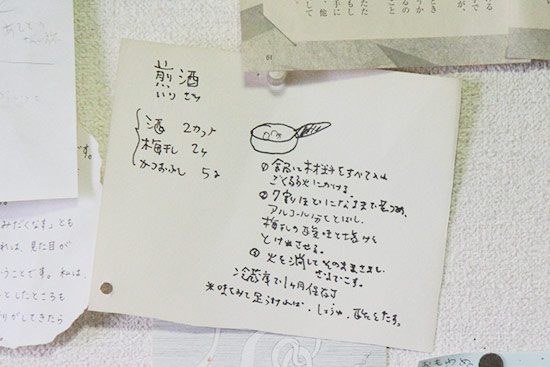 煎酒
いりざけ
酒 2カップ
梅干し 2ケ
かつおぶし 5g
① 鍋に材料をすべて入れ
ごく弱火にかける。
② 7割ほどになるまで煮つめ、
アルコール分をとばし、
梅干しの酸味と塩分を
とけ出させる。
③ 火を消してそのままさまし、
ざるでこす。
冷蔵庫で1ヶ月保存可
※味をみて足りなければ、しょうゆ、酢をたす。
61
みだくなす」とも
れは、見た目が
うことです。私は、
としたところも
りがしてきたら